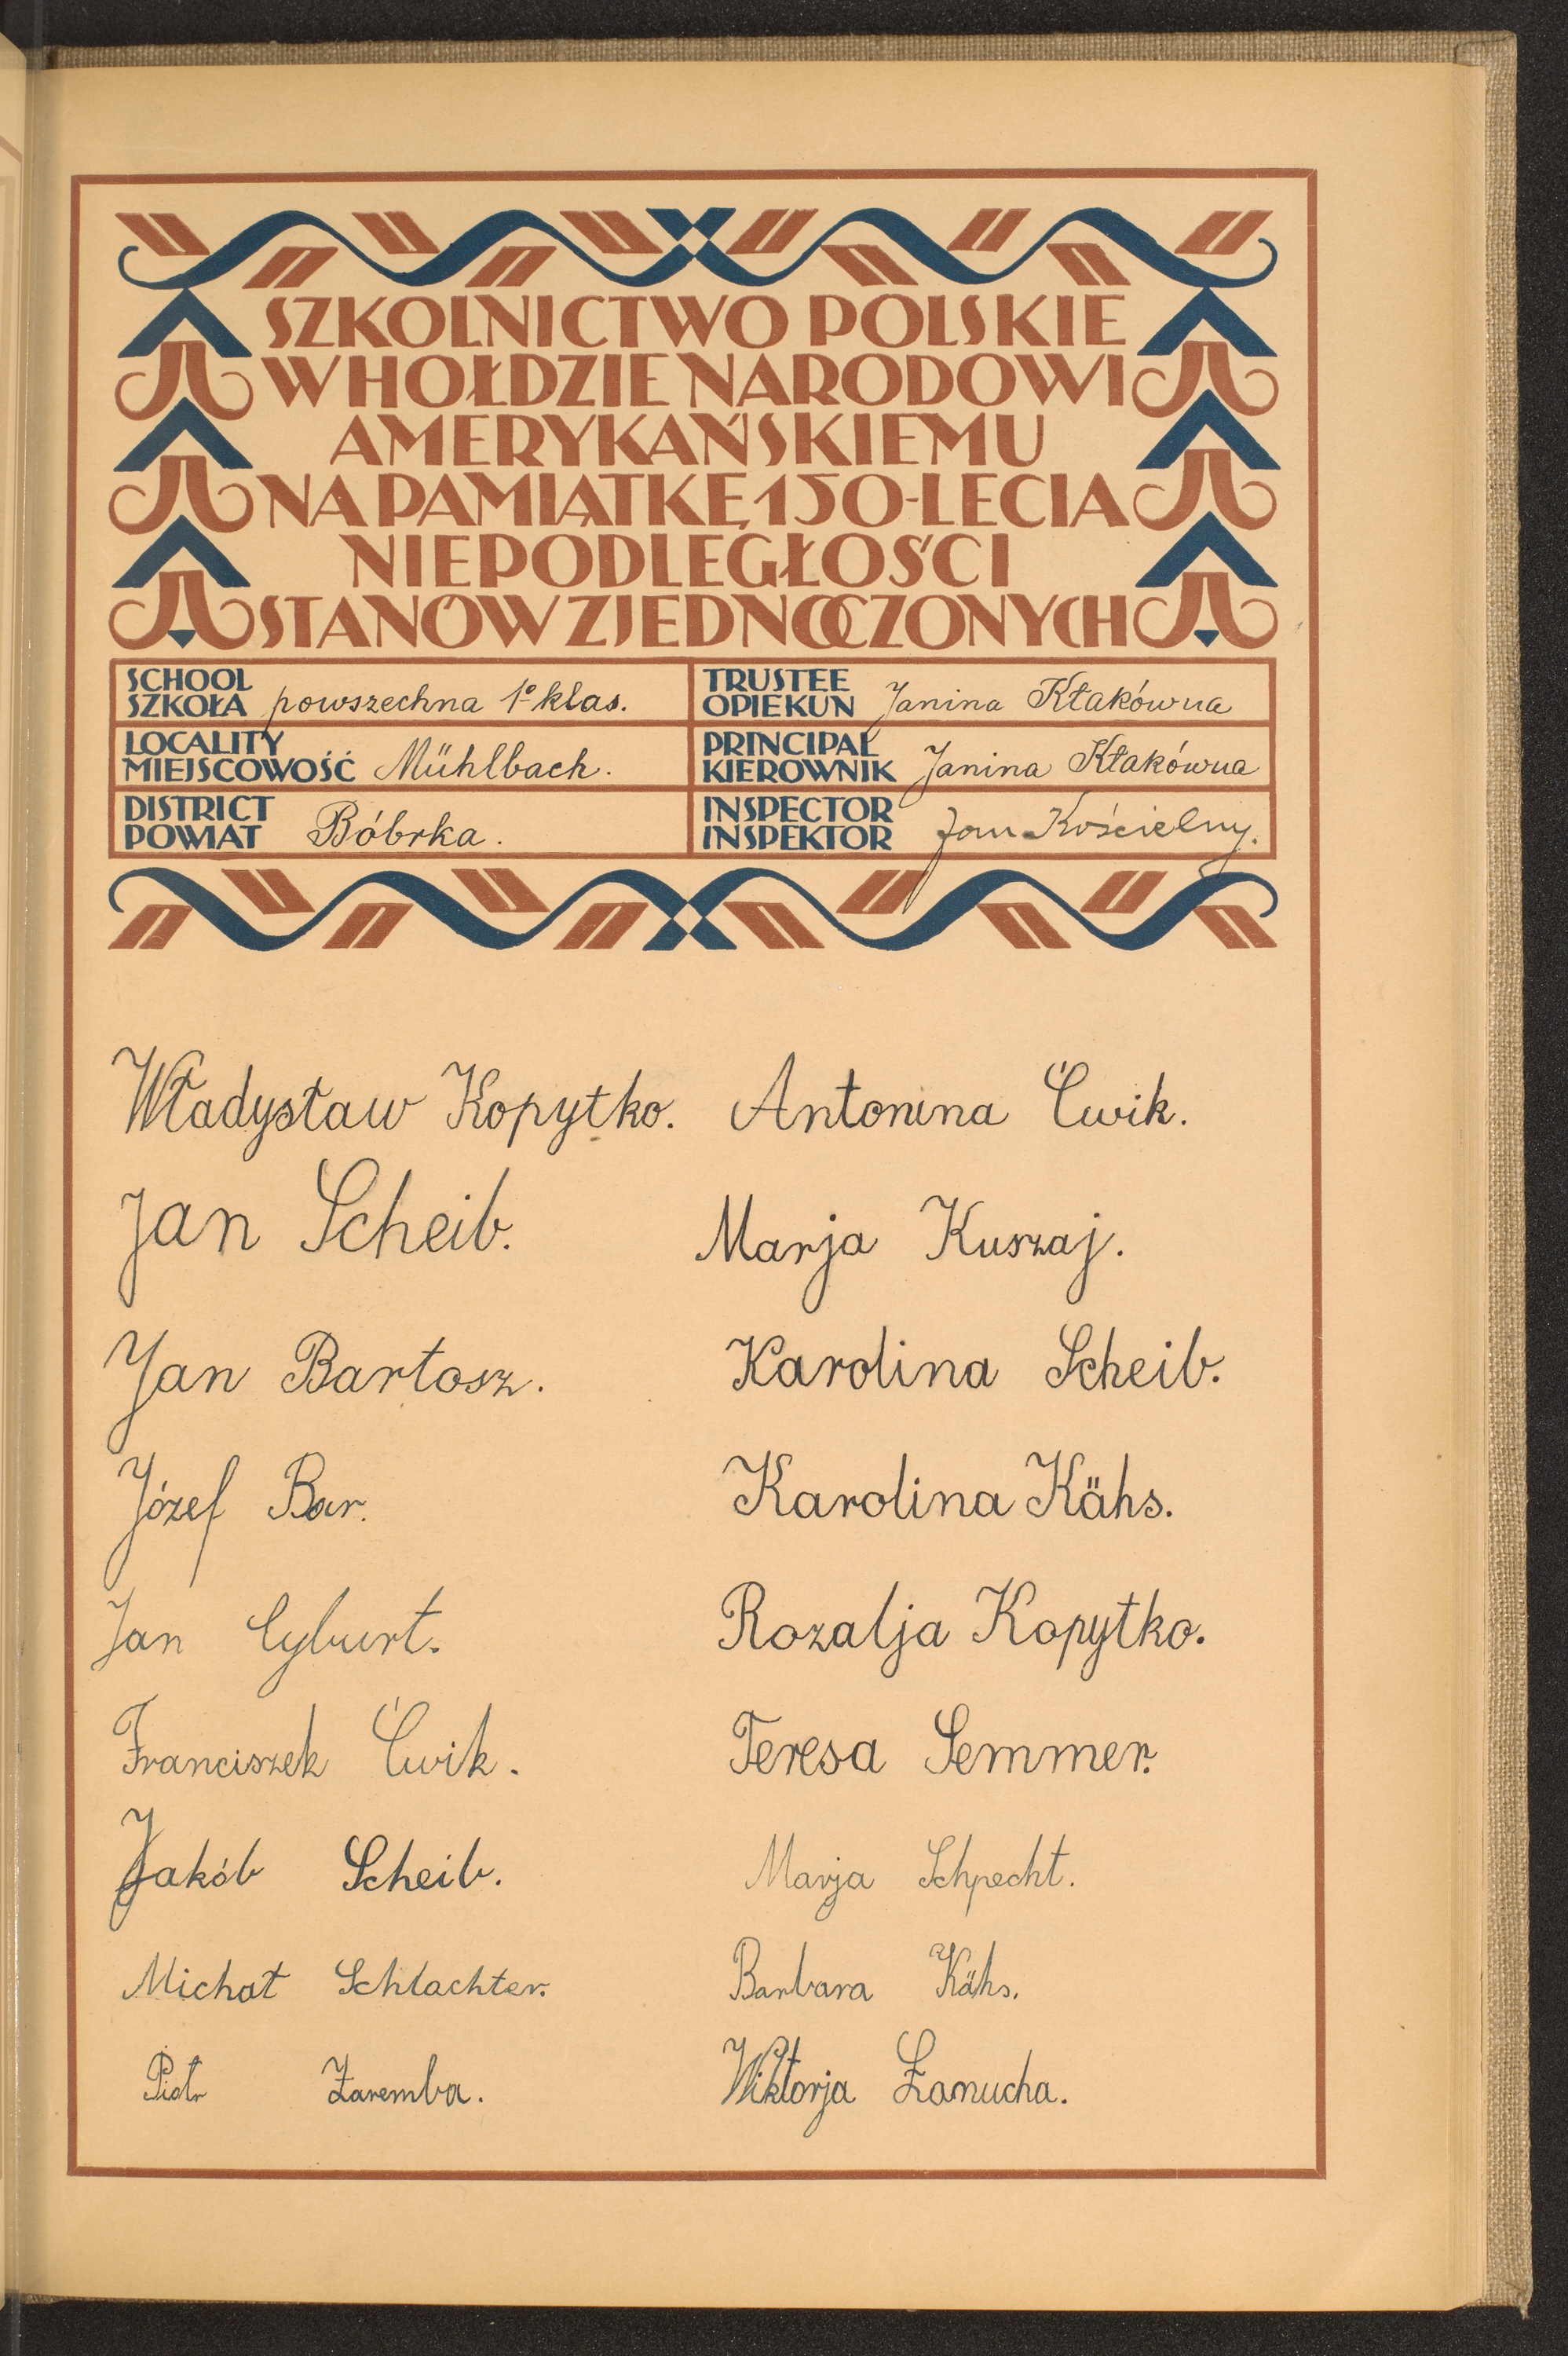 SZKOLNICTWO POLSKIE
W HOŁDZIE NARODOWI
AMERYKAŃSKIEMU
NA PAMIĄTKĘ 150-LECIA
NIEPODLEGŁOŚCI
STANÓW ZJEDNOCZONYCH
SCHOOL
SZKOŁA powszechna 1º klas.
TRUSTEE
OPIEKUN Janina Kłakówna
LOCALITY
MIEJSCOWOŚĆ Mühlbach.
PRINCIPAL
KIEROWNIK Janina Kłakówna
DISTRICT
POWIAT Bóbrka.
INSPECTOR
INSPEKTOR Jan Kościelny.
Władysław Kopytko. Antonina Ćwik.
Jan Scheib. Marja Kuszaj.
Jan Bartosz. Karolina Scheib.
Józef Bar. Karolina Kähs.
Jan Cyburt. Rozalja Kopytko.
Franciszek Ćwik. Teresa Semmer.
Jakób Scheib. Marja Schpecht.
Michał Schlachter. Barbara Kähs.
Piotr Zaremba. Wiktorja Łanucha.